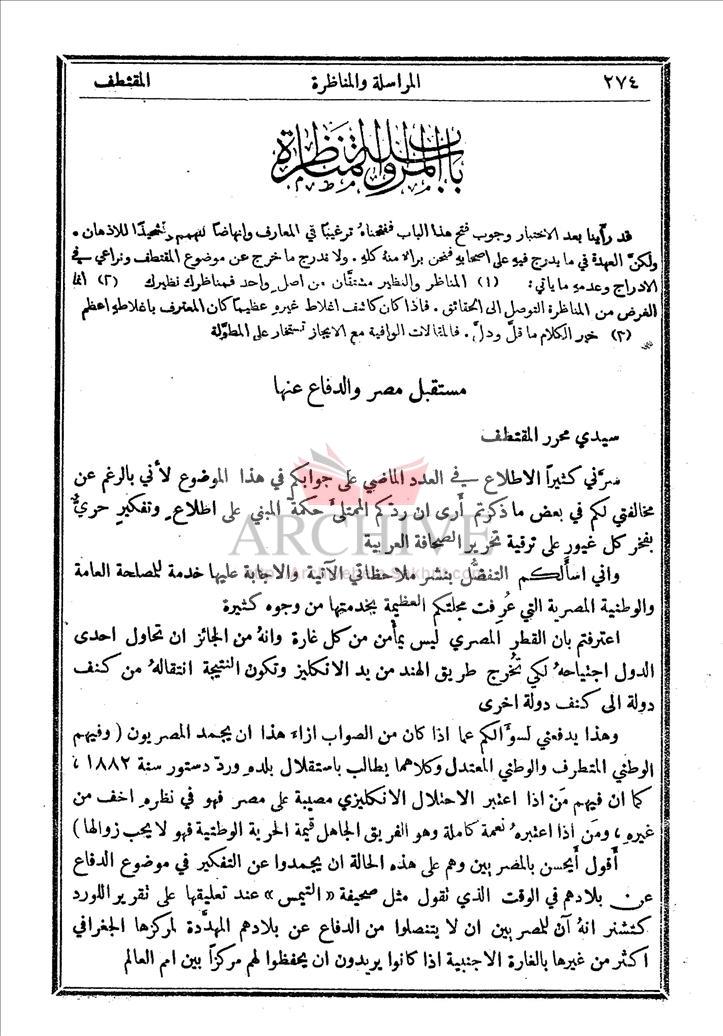 ٢٧٤ المراسلة والمناظرة المقتطف
باب المراسلة والمناظرة
قد رأينا بعد الاختبار وجوب فتح هذا الباب ففتحناهُ ترغيبًا في المعارف وانهاضًا للهمم وتشحيذًا للاذهان .
ولكنّ العهدة في ما يدرج فيهِ على اصحابهِ فنحن برالا منهُ كلهِ . ولا ندرج ما خرج عن موضوع المقتطف ونراعي في
الادراج وعدمهِ ما ياتي : (١) المناظر والنظير مشتقَّان من اصل واحد فمناظرك نظيرك (٢) انما
الغرض من المناظرة التوصل الى الحقائق . فاذا كان كاشف اغلاط غيرهِ عظيمًا كان المعترف باغلاطهِ اعظم
(٣) خير الكلام ما قلَّ ودلَّ . فالمقالات الوافية مع الايجاز تستخار على المطوَّلة
مستقبل مصر والدفاع عنها
سيدي محرر المقتطف
سرَّني كثيرًا الاطلاع في العدد الماضي على جوابكم في هذا الموضوع لأني بالرغم عن
مخالفتي لكم في بعض ما ذكرتم أرى ان ردكم الممتلئ حكمة المبني على اطلاعٍ وتفكيرٍ حريٌّ
بفخر كل غيور على ترقية تحرير الصحافة العربية
ARCHIVE
واني اسألكم التفضُّل بنشر ملاحظاتي الآتية والاجابة عليها خدمة للمصلحة العامة
والوطنية المصرية التي عُرفت مجلتكم العظيمة بخدمتها من وجوه كثيرة
اعترفتم بان القطر المصري ليس بمأمن من كل غارة وانهُ من الجائز ان تحاول احدى
الدول اجتياحهُ لكي تُخرج طريق الهند من يد الانكليز وتكون النتيجة انتقالهُ من كنف
دولة الى كنف دولة اخرى
وهذا يدفعني لسؤالكم عما اذا كان من الصواب ازاء هذا ان يجمد المصريون ( وفيهم
الوطني المتطرف والوطني المعتدل وكلاهما يطالب باستقلال بلدهِ وردّ دستور سنة ١٨٨٢ ،
كما ان فيهم مَن اذا اعتبر الاحتلال الانكليزي مصيبة على مصر فهو في نظرهِ اخف من
غيرهِ ، ومَن اذا اعتبرهُ نعمة كاملة وهو الفريق الجاهل قيمة الحرية الوطنية فهو لا يحب زوالها )
أقول أيحسن بالمصريين وهم على هذه الحالة ان يجمدوا عن التفكير في موضوع الدفاع
عن بلادهم في الوقت الذي تقول مثل صحيفة « التيمس » عند تعليقها على تقرير اللورد
كتشنر انهُ آن للمصريين ان لا يتنصلوا من الدفاع عن بلادهم المهدَّدة لمركزها الجغرافي
اكثر من غيرها بالغارة الاجنبية اذا كانوا يريدون ان يحفظوا لهم مركزًا بين امم العالم